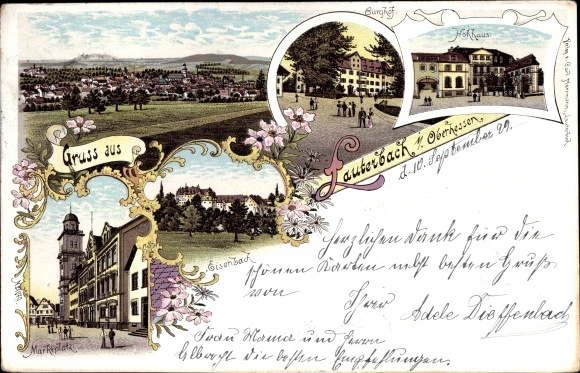 Burghof.
Hohhaus.
Gruss aus
Lauterbach i/ Oberhessen
d. 10. September 99.
Eisenbach
Marktplatz
Herzlichen Dank für die
schönen Karten nebst besten Gruß
von Ihrer
Adele Dieffenbach
Frau Mama und Herrn
Albrecht die besten Empfehlungen.